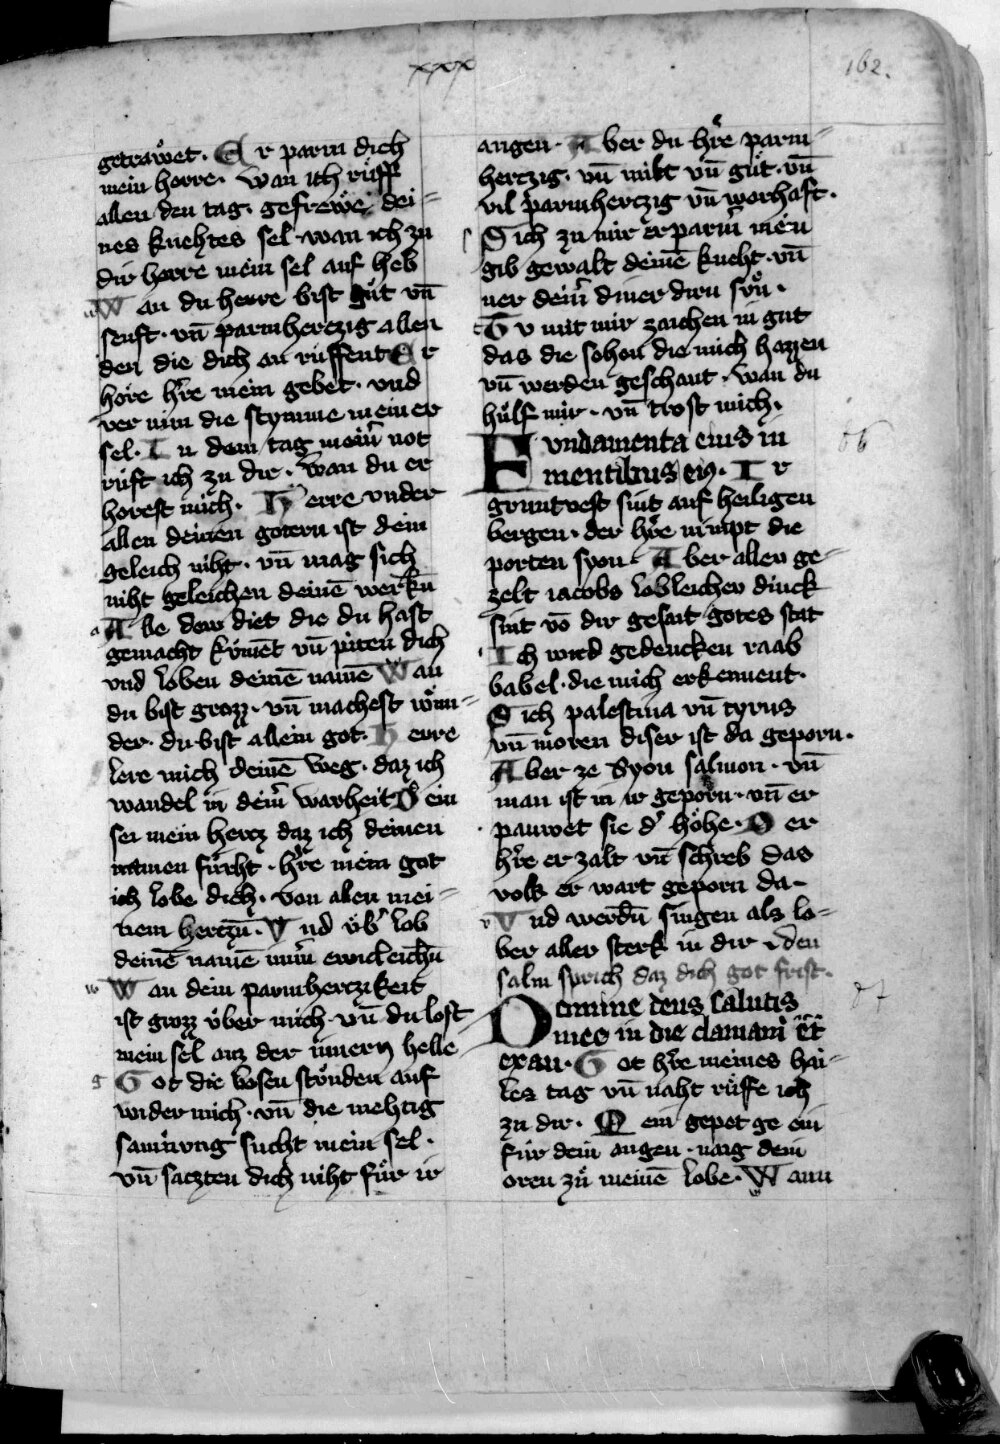 xxx
162.
getrawet. Er parm dich
mein herre. wan ich růff
allen den tag. gefrewe dei=
nes knehtes sel. wan ich zu
dir herre mein sel auf heb
Wan du herre bist gůt vn̄
senft. vn̄ parmhertzig allen
den die dich an ruͤffent Er
hore hr̄e mein gebet. vnd
ver nim die stymme meiner
sel. In dem tag mein̄ not
ruͤft ich zu dir. wan du er
horest mich. Herre vnder
allen deinen gotern ist dein
geleich niht. vn̄ mag sich
niht geleichen deinē werkn̄
Alle dew diet die du hast
gemacht kv̊ment vn̄ piten dich
vnd loben deinē namē Wan
du bist grozz. vn̄ machest wun=
der. du bist allein got. Herre
lere mich deinē weg. daz ich
wandel in dein̄ warheit Dein
sei mein hertz daz ich deinen
namen fuͤrht. hr̄e mein got
ich lobe dich. von allen mei=
nem hertzn̄. Vnd vb̄ lob
deinē namē im̄m̄ ewicleichn̄
Wan dein parmhertzikeit
ist grozz vͤber mich. vn̄ du lost
mein sel auz der innern helle
Got die bosen stuͤnden auf
wider mich. vn̄ die mehtig
samnvng sucht mein sel.
vn̄ satzten dich niht fuͤr ir
augen. Aber du hr̄e parm=
hertzig. vn̄ milt vn̄ gůt. vn̄
vil parmhertzig vn̄ worhaft.
Sich zu mir erparm̄ mein
gib gewalt deinē kneht. vn̄
ner dein̄ diner dirn svn.
Tv mit mir zaichen in gut
das die sehen die mich hazzen
vn̄ werden geschant. wan du
huͤlf mir. vn̄ trost mich.
Fvndamenta eius in
mentibus eiꝰ. Ir 86
gruntvest sint auf heiligen
bergen. der hr̄e nimpt die
porten syon. Aber allen ge=
zelt iacobs lobleichev dinck
sint vō dir gesait gotes stat
Ich wird gedencken raab
babel. die mich erkennent.
Sich palestina vn̄ tyrus
vn̄ moren diser ist da geporn.
Aber ze Syon salmon. vn̄
man ist in ir geporn. vn̄ er
pauwet sie d' hoͤhe. Der
hr̄e er zalt vn̄ schreb das
volk er wart geporn da.
Vnd werdn̄ singen als lo=
ber aller sterk in dir. den
salm sprich daz dich got frist.
Domine deus salutis 87
mee in die clamaui et
exau. Got hr̄e meines hai=
les tag vn̄ naht ruͤffe ich
zu dir. Mein gepet ge ein
fuͤr dein augen. naig dein
oren zů meinē lobe. Wann